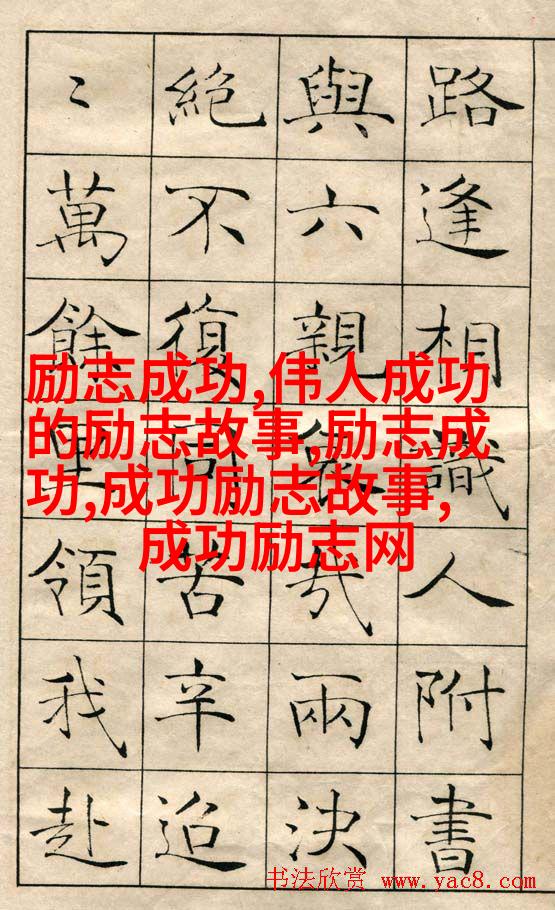 路逢相識人附書
與六親哀哉兩決
絶不復同苦辛迢
〻萬餘里領我赴
励志成功,伟人成功
的励志故事,励志成
功,成功励志故事,
成功励志网
书法欣赏 www.yac8.com